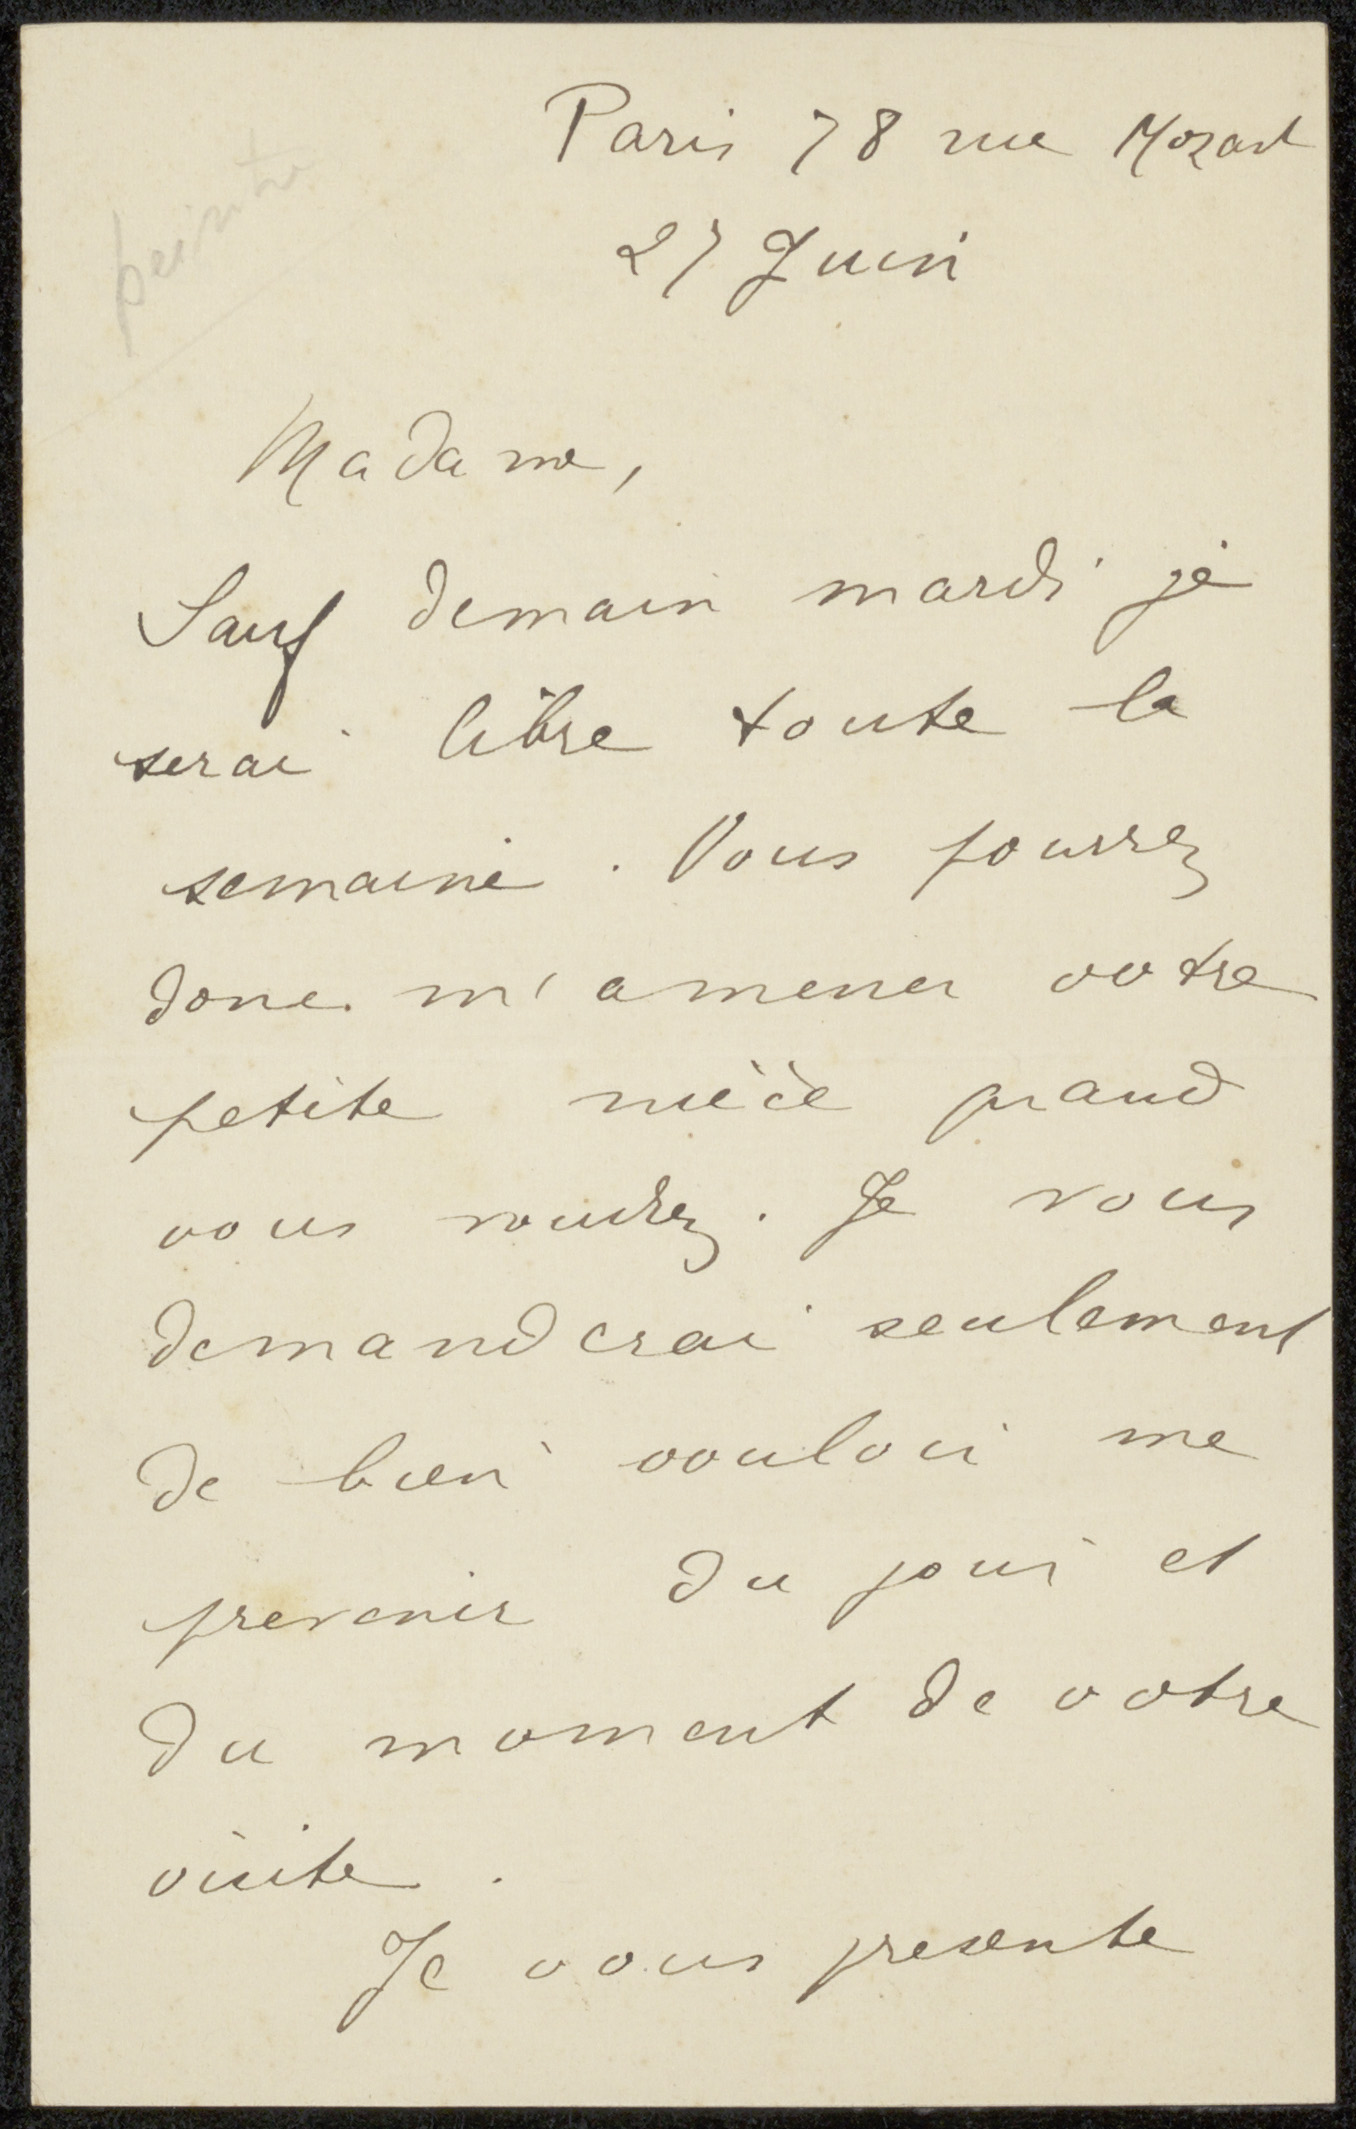 Paris 78 rue Mozart
27 Juin
peintre
Madame,
Sauf demain mardi je
serai libre toute la
semaine. Vous pourrez
donc m'amener votre
petite nièce quand
vous voudrez. Je vous
demanderai seulement
de bien vouloir me
prevenir du jour et
du moment de votre
visite.
Je vous presente